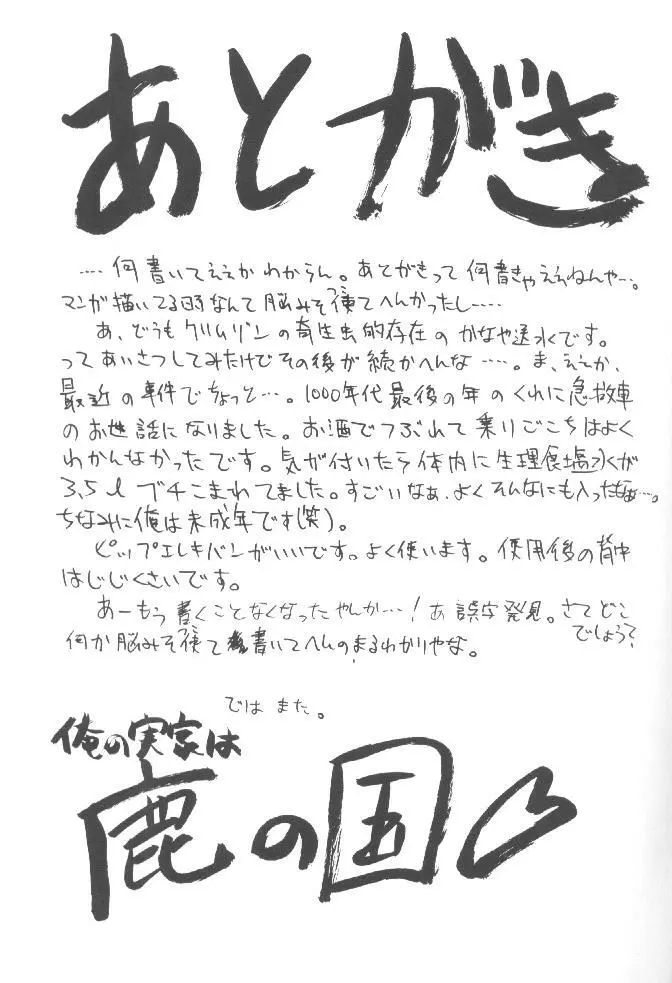 あとがき
‥‥何書いてええかわからん。あとがきって何書きゃええねんや‥。
マンガ描いてる時なんて脳みそ使てへんかったし‥‥
あ、どうもクリムゾンの寄生虫的存在のかなや送水です。
ってあいさつしてみたけどその後が続かへんな‥‥。ま、ええか、
最近の事件でちょっと‥。1000年代最後の年のくれに急救車
のお世話になりました。お酒でつぶれて乗りごこちはよく
わかんなかったです。気が付いたら体内に生理食塩水が
3.5ℓブチこまれてました。すごいなぁ、よくそんなにも入ったなぁ‥。
ちなみに俺は未成年です(笑)。
ピップエレキバンがいいです。よく使います。使用後の背中
はじじくさいです。
あーもう書くことなくなったやんか‥!あ誤字発見。さてどこ
でしょう?
何か脳みそ使て書いてへんのまるわかりやな。
ではまた。
俺の実家は
鹿の国